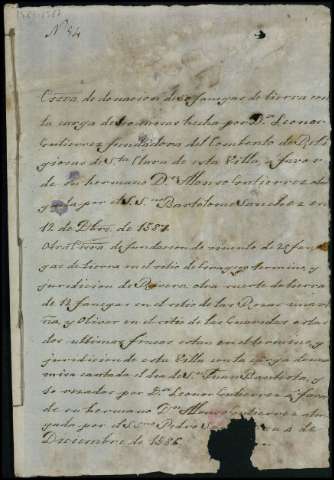 Nº 54
Escra de donacion de 20 fanegas de tierra con
la carga de misas hecha por Dª Leonor
Gutierrez fundadora del Combento de Reli
giosas de Sta Clara de esta Villa, a favor
de su hermano Dn Alonso Gutierrez otor
gada por el S. Sno Bartolome Sanchez en
12 de Dbre de 1581
Otra Escra de fundacion de vinculo de 25 fan
egas de tierra en el sitio de termino, y
juridicion de otra suerte de tierra
de 12 fanegas en el sitio de las Rozas una
ña, y Olivar en el sitio de las estas
dos ultimas fincas estan en el termino, y
juridicion de esta Villa con la carga de una
misa cantada el dia de Sn Juan Bautista, y
seis rezadas por Dª Leonor Gutierrez a favor
de su hermano Dn Alonso Gutierrez otor
gada por el S. Sno Pedro a 2 de
Diciembre de 1586